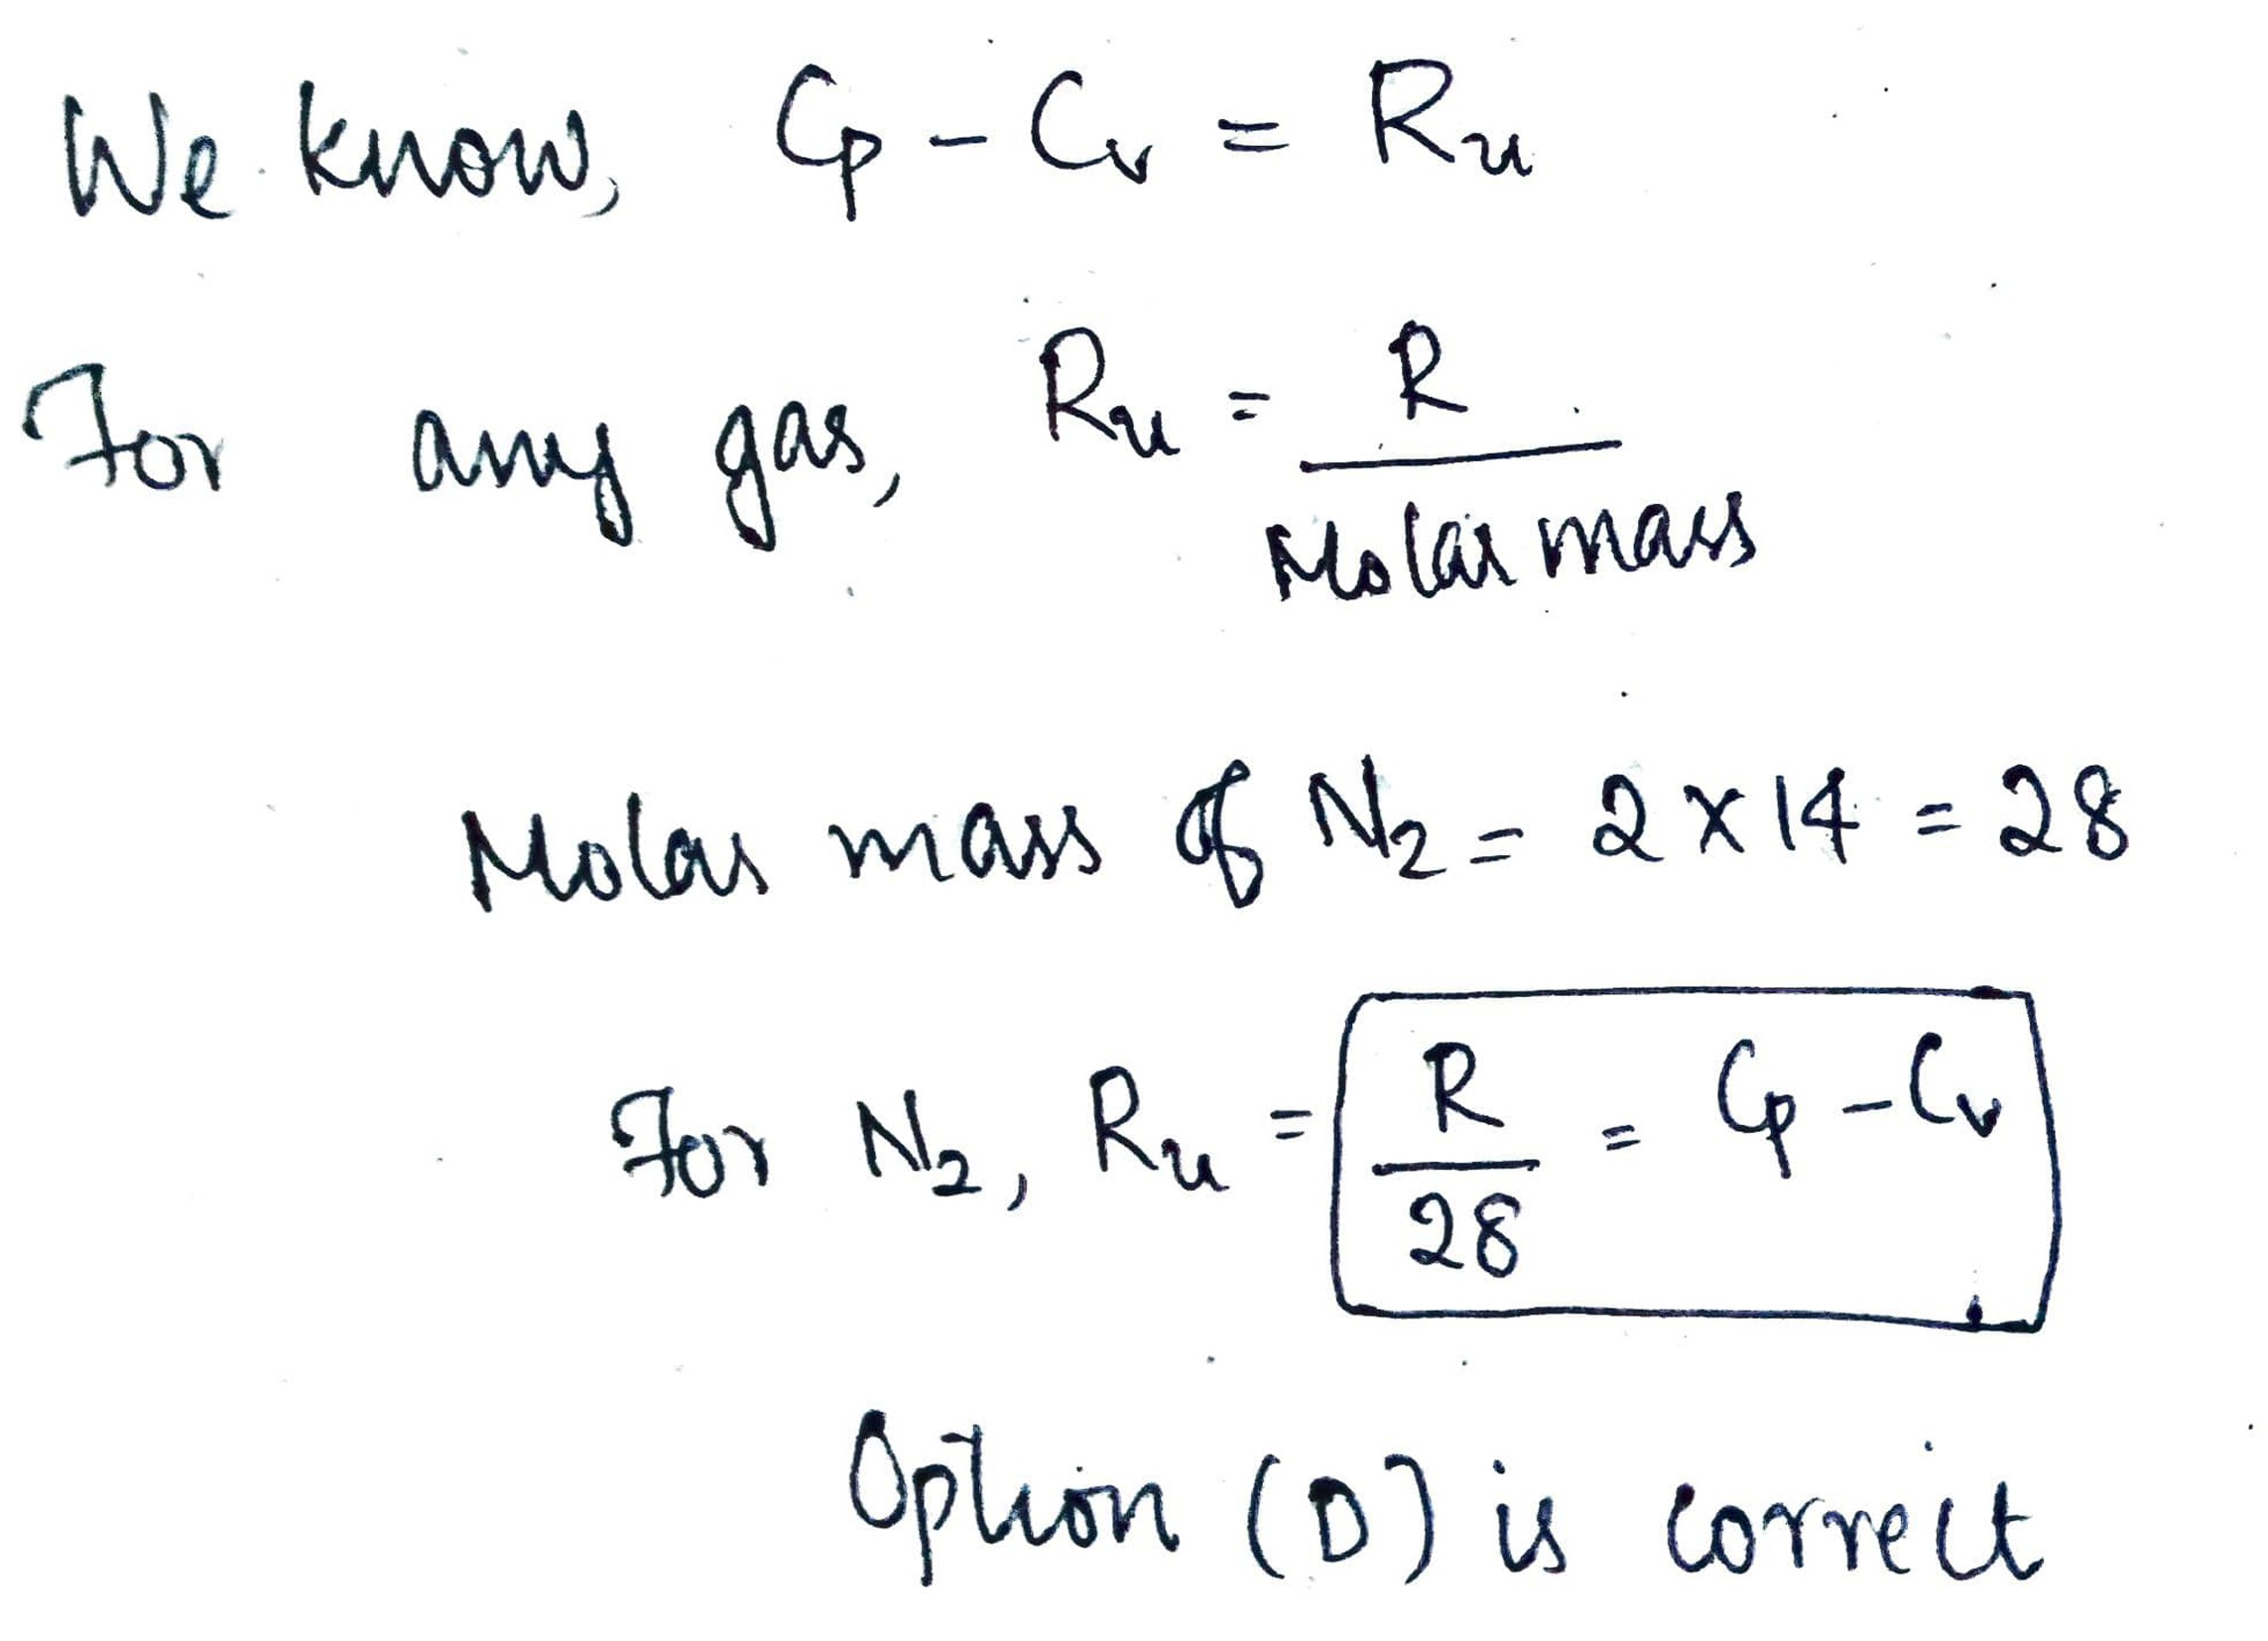 We know, Cp - Cv = Ru
For any gas, Ru = R / Molar mass
Molar mass of N2 = 2 x 14 = 28
For N2, Ru = R / 28 = Cp - Cv
Option (D) is correct